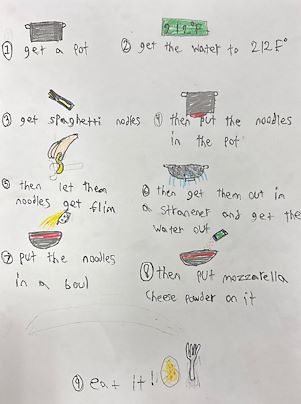 212°F
① get a pot
② get the water to 212F°
③ get spaghetti nodles
④ then put the noodles
in the pot
⑤ then let them
noodles get flim
⑥ then get them out in
a stranener and get the
water out
⑦ put the noodles
in a boul
⑧ then put mozzarella
cheese powder on it
⑨ eat it!